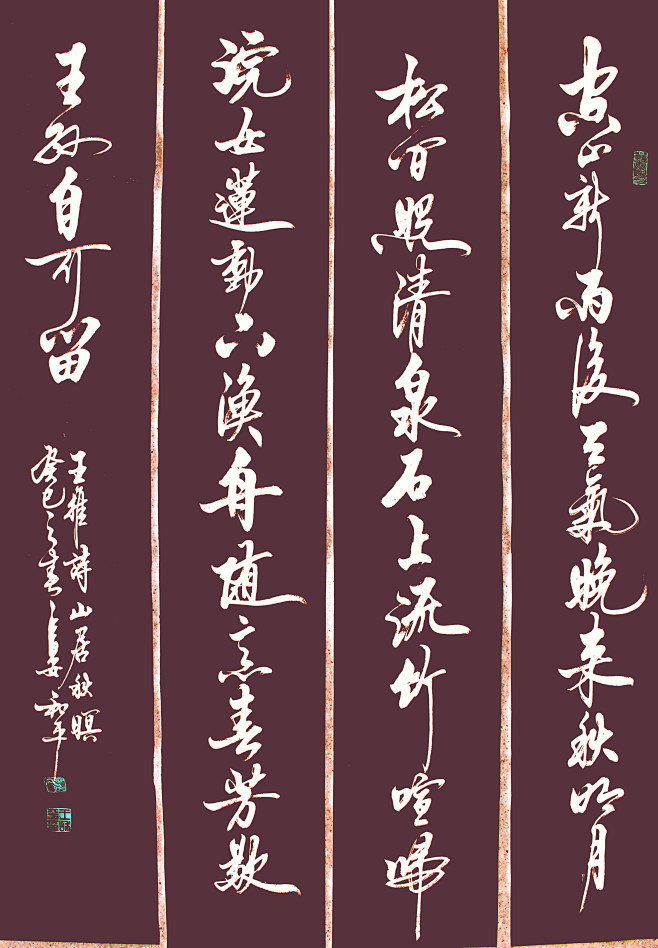 空山新雨後天氣晚来秋明月
松间照清泉石上流竹喧歸
浣女蓮動下漁舟隨意春芳歇
王孫自可留
王維詩山居秋暝
癸巳之春長安